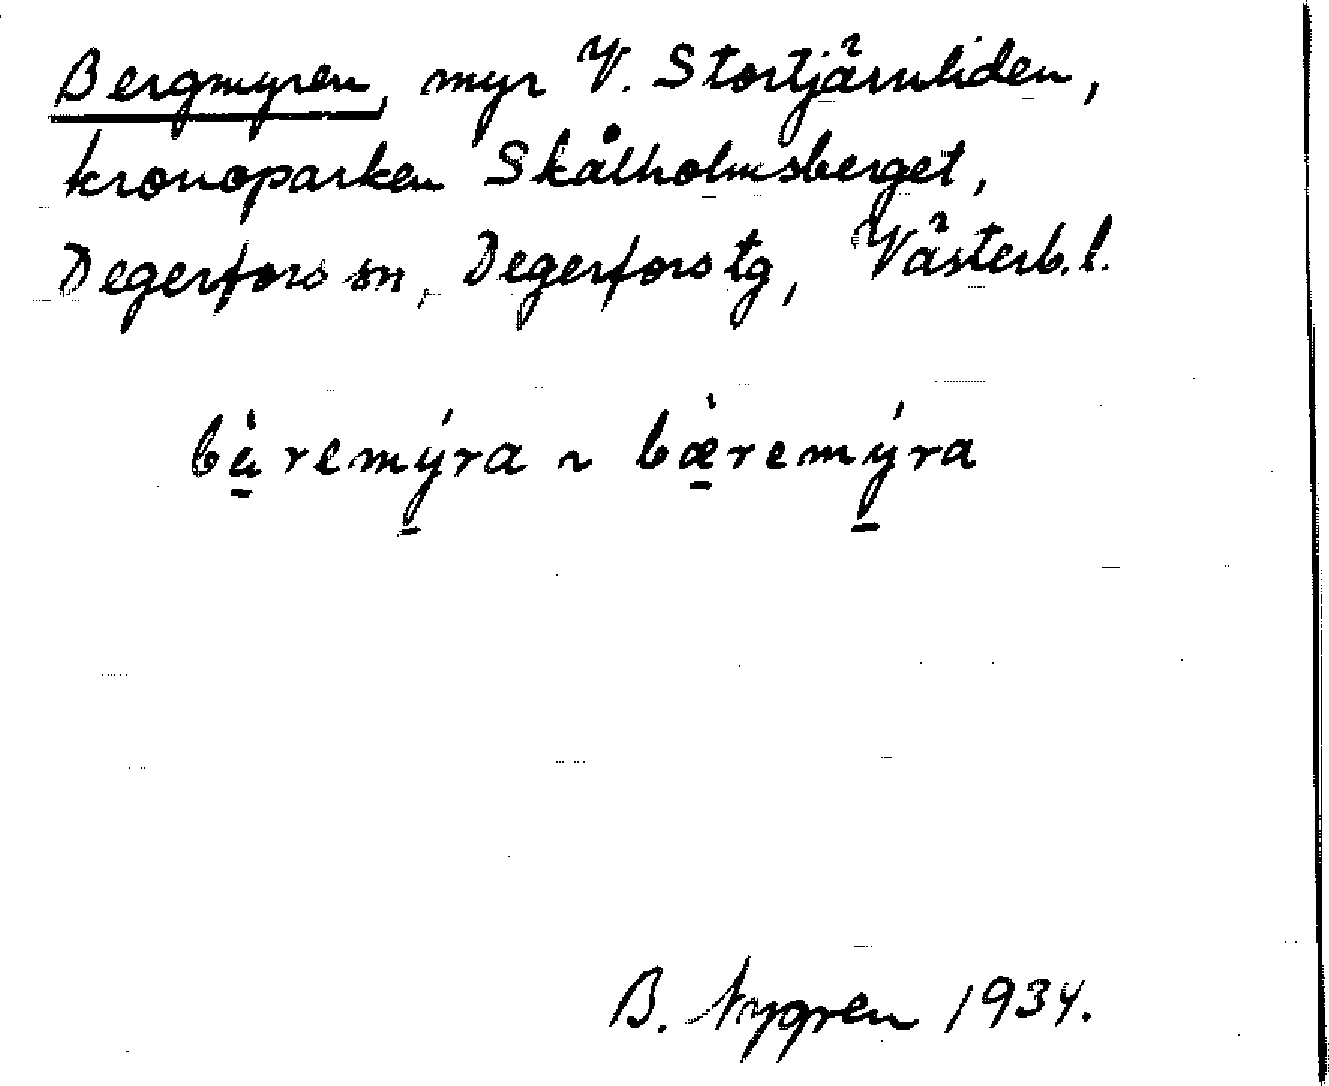 Bergmyren, myr V. Stortjärnliden,
kronoparken Skålholmsberget,
Degerfors sn, Degerfors tg, Västerb. l.
bàremýra ~ bæ̀remýra
B. Nygren 1934.